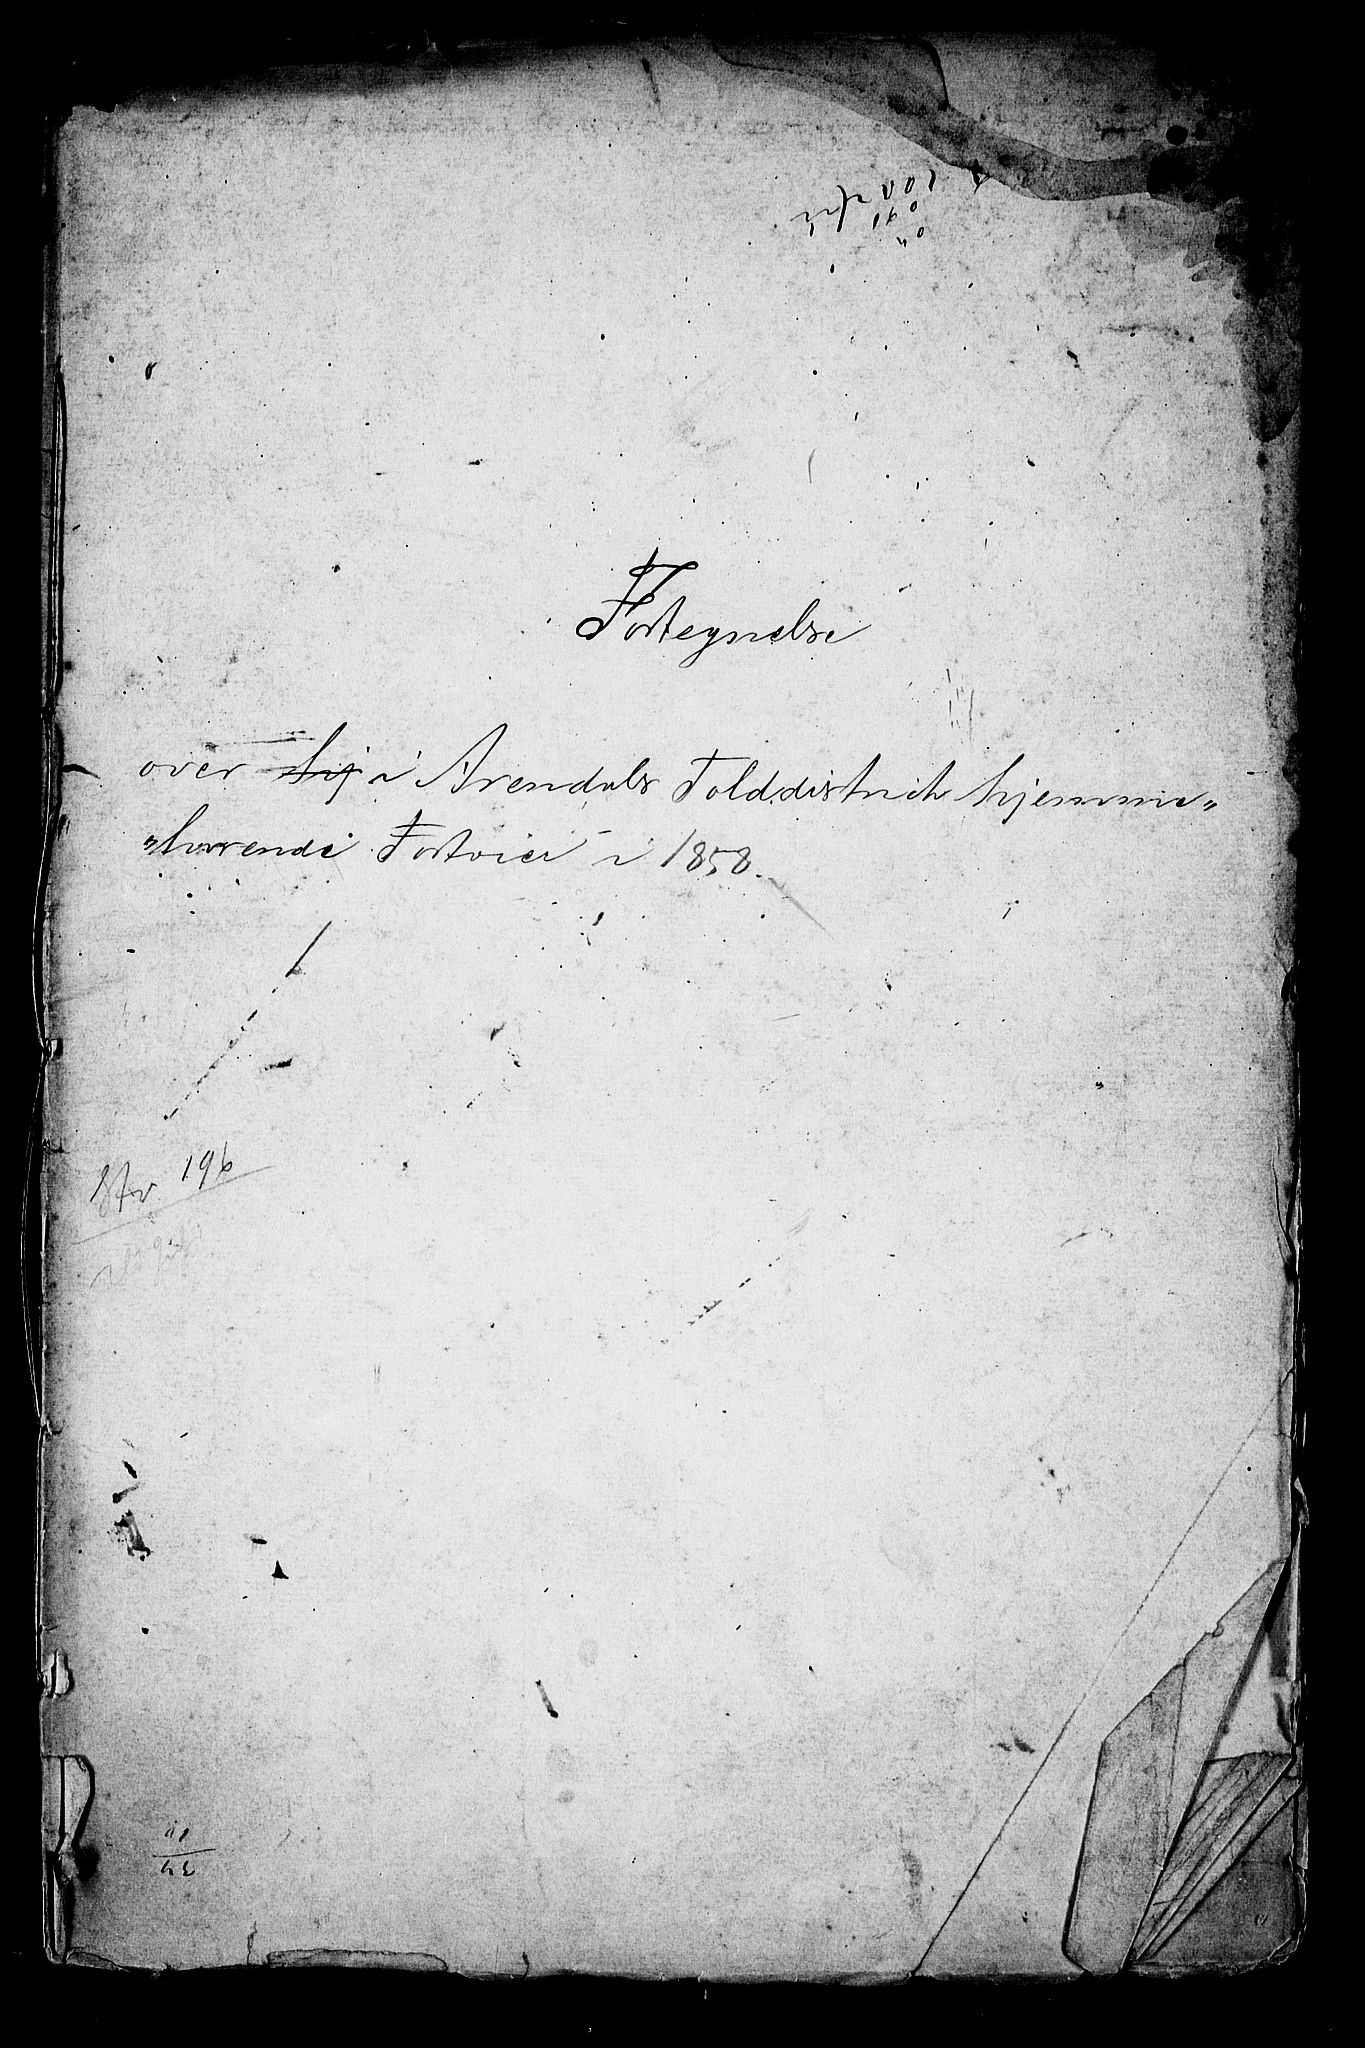 Fortegnelse
over hj i Arendals Tolddistrikt hjemme„
„hørende Fartøier i 1858.
196